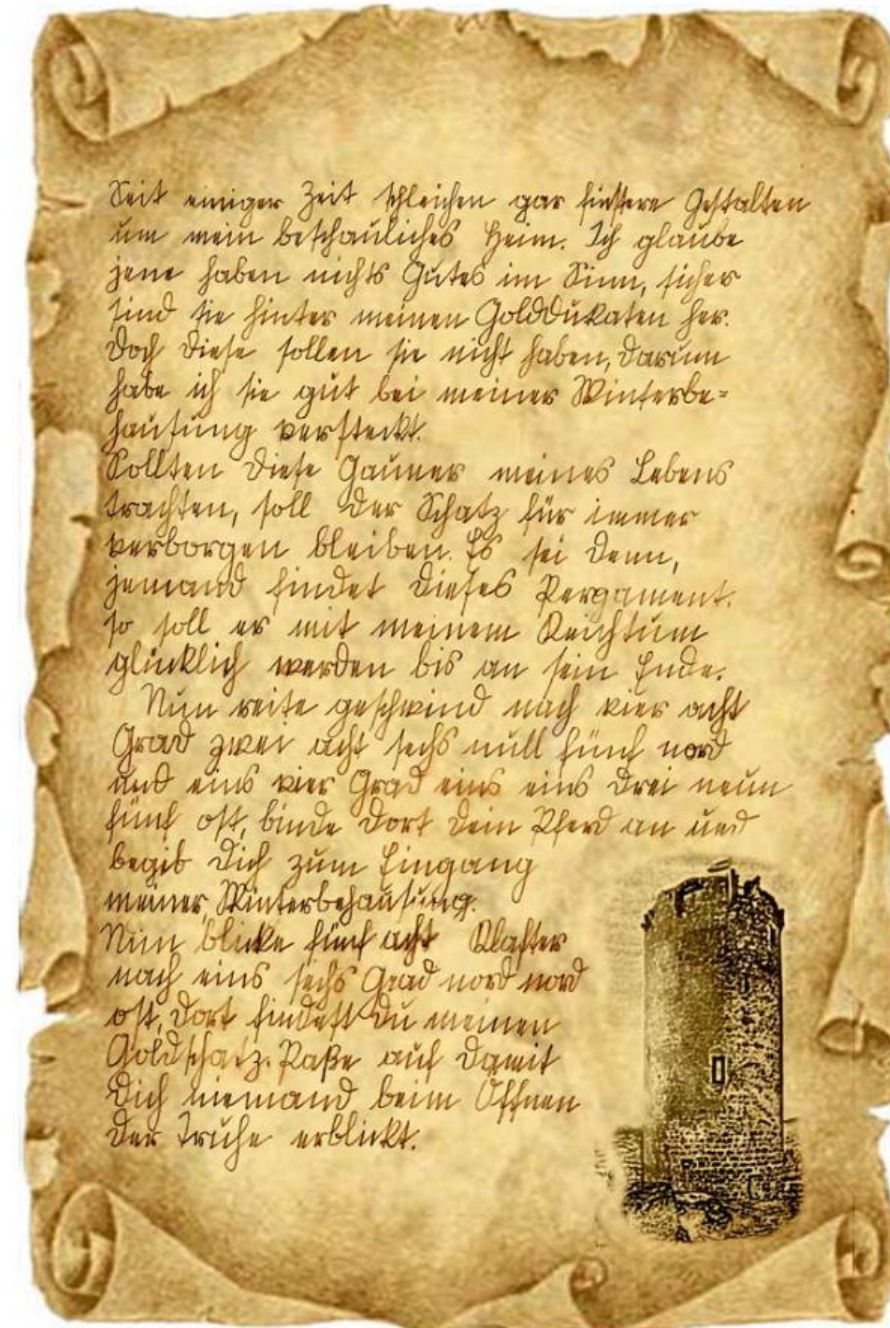 Seit einiger Zeit schleichen gar finstere Gestalten
um mein beschauliches Heim. Ich glaube
jene haben nichts Gutes im Sinn, sicher
sind sie hinter meinen Golddukaten her.
Doch diese sollen sie nicht haben, darum
habe ich sie gut bei meiner Winterbe=
hausung versteckt.
Sollten diese Gauner meines Lebens
trachten, soll der Schatz für immer
verborgen bleiben. Es sei denn,
jemand findet dieses Pergament.
so soll er mit meinem Reichtum
glücklich werden bis an sein Ende.
Nun reite geschwind nach vier acht
Grad zwei acht sechs null fünf nord
und eins vier Grad eins eins drei neun
fünf ost, binde dort dein Pferd an und
begib dich zum Eingang
meiner Winterbehausung.
Nun blicke fünf acht Klafter
nach eins sechs Grad nord nord
ost, dort findest du meinen
Goldschatz. Paße auf damit
dich niemand beim Öffnen
der Truhe erblickt.